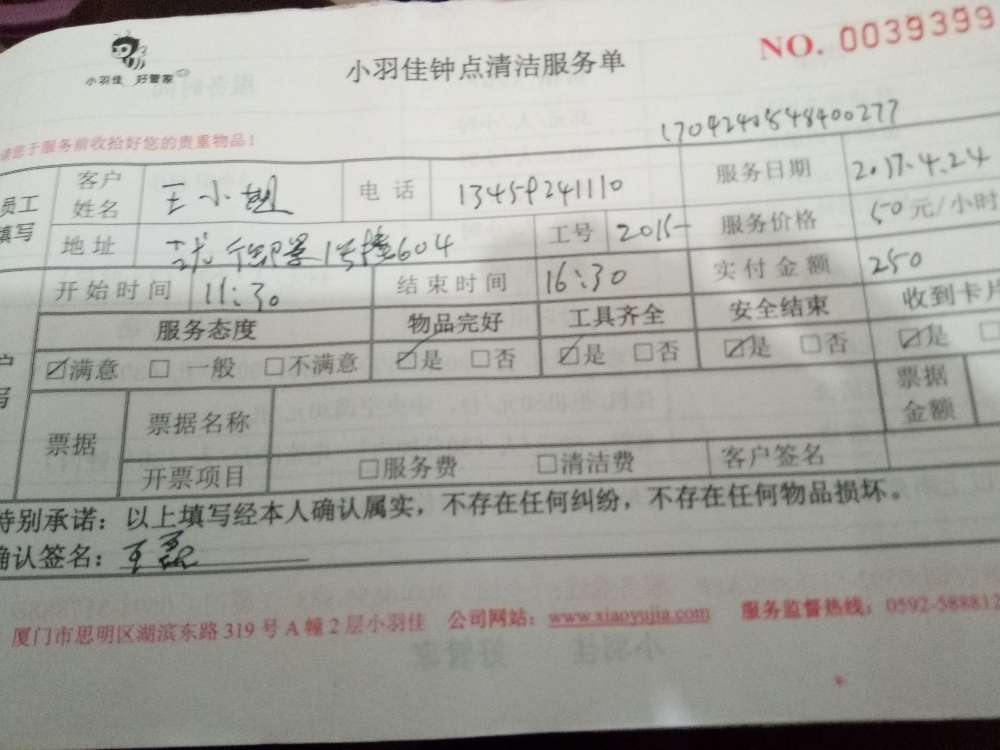 小羽佳 好管家
小羽佳钟点清洁服务单
NO. 0039399
于服务前收拾好您的贵重物品！
1704240548400277
员工填写
客户姓名 王小姐 电话 13459241110 服务日期 2017.4.24
地址 1号楼604 工号 2015- 服务价格 50元/小时
开始时间 11:30 结束时间 16:30 实付金额 250
服务态度 物品完好 工具齐全 安全结束 收到卡片
☑满意 □一般 □不满意 ☑是 □否 ☑是 □否 ☑是 □否 ☑是 □
票据 票据名称 票据金额
开票项目 □服务费 □清洁费 客户签名
特别承诺：以上填写经本人确认属实，不存在任何纠纷，不存在任何物品损坏。
确认签名：王
厦门市思明区湖滨东路319号A幢2层小羽佳 公司网站：www.xiaoyujia.com 服务监督热线：0592-588812